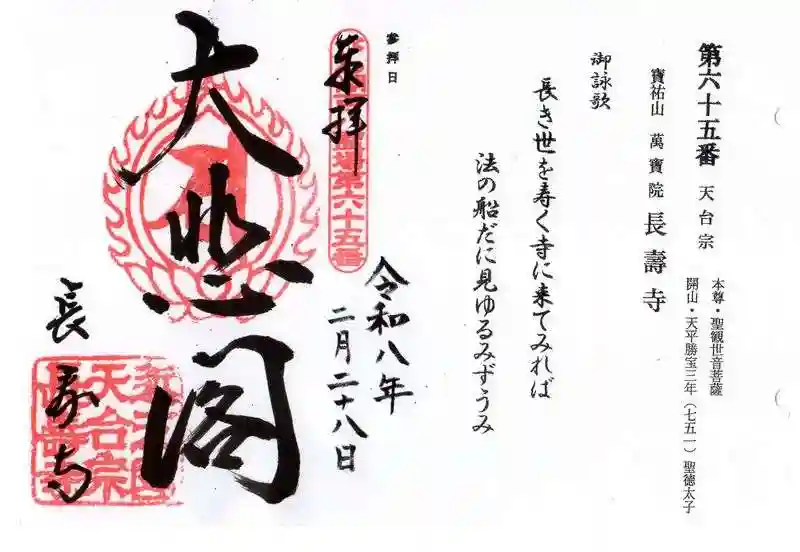 第六十五番 天台宗
寶祐山 萬寶院 長壽寺
本尊・聖観世音菩薩
開山・天平勝宝三年（七五一）聖徳太子
御詠歌
長き世を寿く寺に来てみれば
法の船だに見ゆるみずうみ
参拝日
奉拝
第六十五番
令和八年
二月二十八日
大悲閣
長寿寺
天台宗